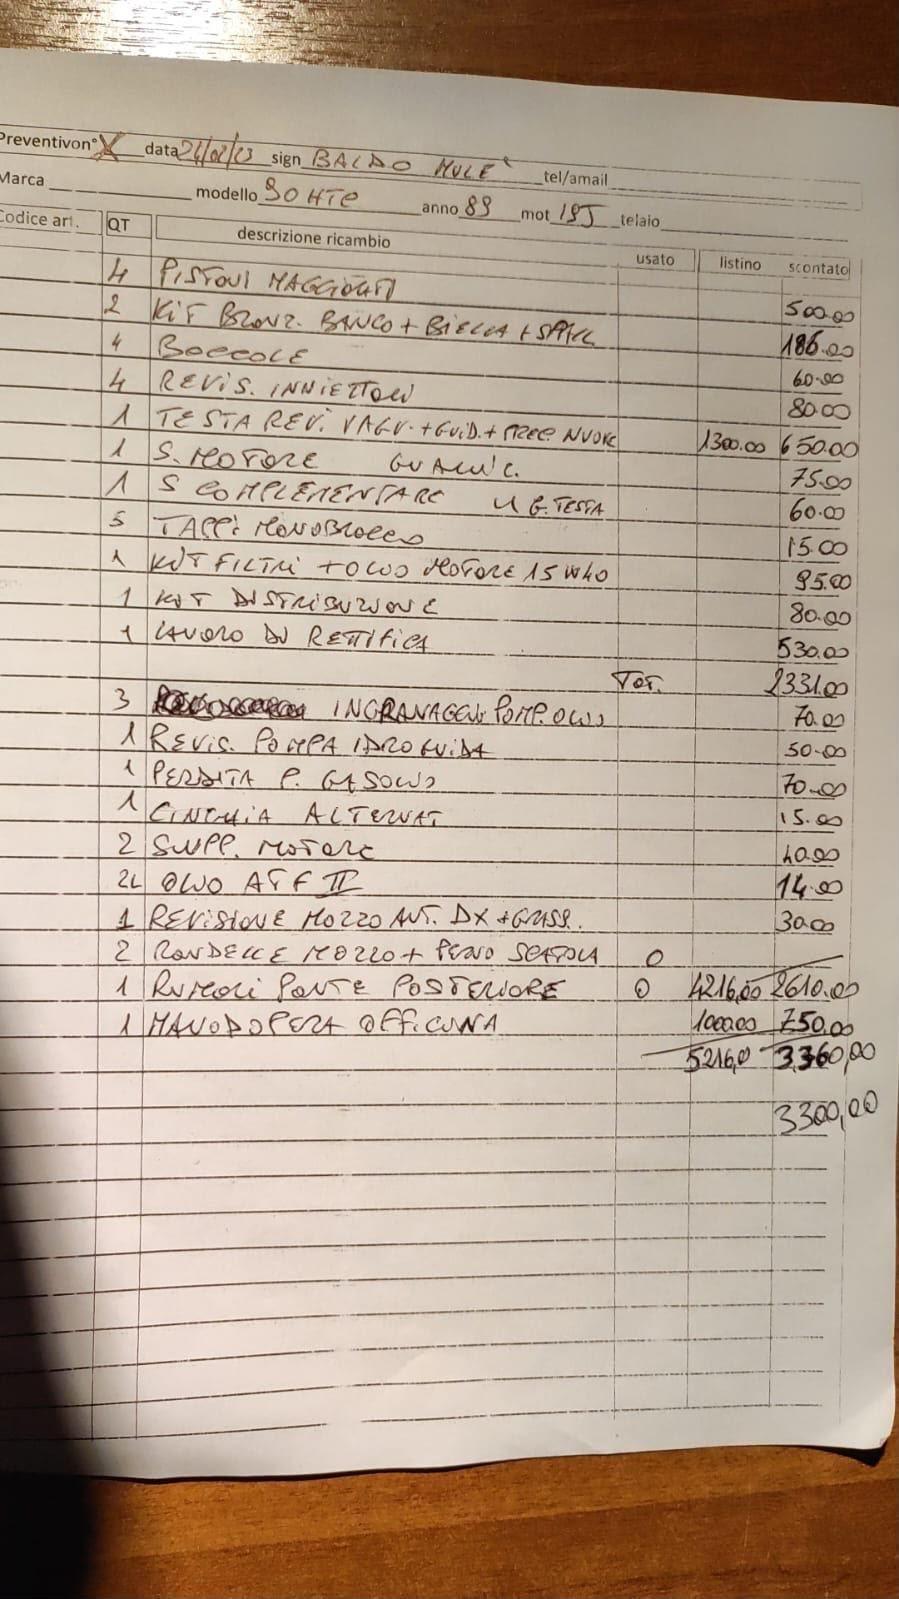 Preventivon° X data 24/02/23 sign BALDO MULE' tel/amail
Marca modello 90 HTC anno 89 mot 19J telaio
Codice art. QT descrizione ricambio usato listino scontato
4 PISTONI MAGGIORATI 500.00
2 KIT BRONZ. BANCO + BIELLA + SPALL 186.00
4 BOCCOLE 60.00
4 REVIS. INNIETTORI 80.00
1 TESTA REV. VALV. + GUID. + PREC. NUOVE 1300.00 650.00
1 S. MOTORE GUARNIC. 75.00
1 S COMPLEMENTARE G. TESTA 60.00
5 TAPPI MONOBLOCCO 15.00
1 KIT FILTRI + OLIO MOTORE 15W40 95.00
1 KIT DISTRIBUZIONE 80.00
1 LAVORO DI RETTIFICA 530.00
TOT. 2331.00
3 INGRANAGGI POMP. OLIO 70.00
1 REVIS. POMPA IDROGUIDA 50.00
1 PERDITA P. GASOLIO 70.00
1 CINGHIA ALTERNAT 15.00
2 SUPP. MOTORE 40.00
2L OLIO ATF II 14.00
1 REVISIONE MOZZO ANT. DX + GRASS. 30.00
2 RONDELLE MOZZO + PERNO SCATOLA O
1 RUMORI PONTE POSTERIORE O 4216,00 2610.00
1 MANODOPERA OFFICINA 1000.00 750.00
5216,0 3360,00
3300,00